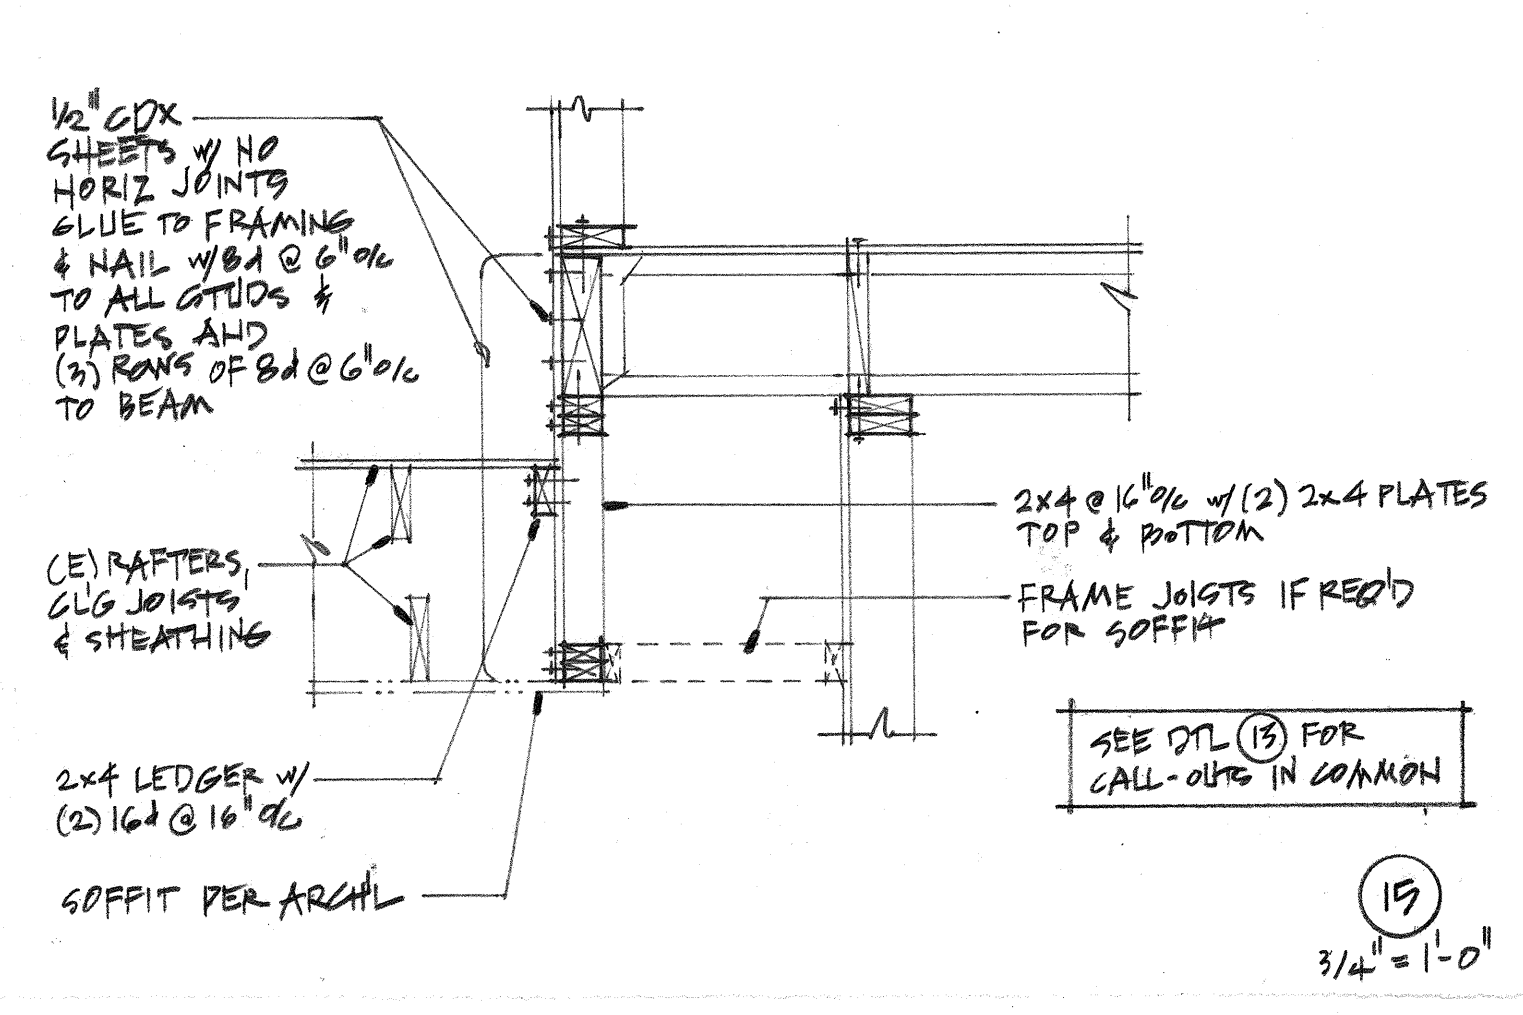 1/2" CDX
SHEETS w/ NO
HORIZ JOINTS
GLUE TO FRAMING
& NAIL w/8d @ 6" o/c
TO ALL STUDS &
PLATES AND
(3) ROWS OF 8d @ 6" o/c
TO BEAM
(E) RAFTERS,
CL'G JOISTS
& SHEATHING
2x4 LEDGER w/
(2) 16d @ 16" o/c
SOFFIT PER ARCH'L
2x4 @ 16" o/c w/ (2) 2x4 PLATES
TOP & BOTTOM
FRAME JOISTS IF REQ'D
FOR SOFFIT
SEE DTL 13 FOR
CALL-OUTS IN COMMON
15
3/4" = 1'-0"